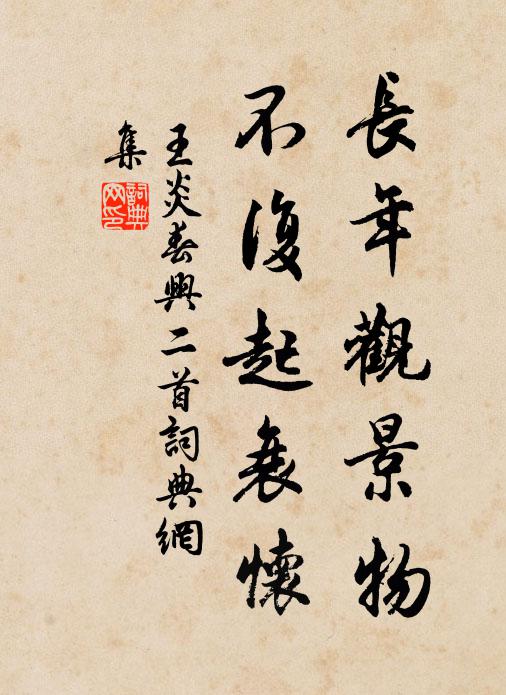 長年觀景物
不復起衰懷
王炎春興二首詞典網
集
詞典
网印